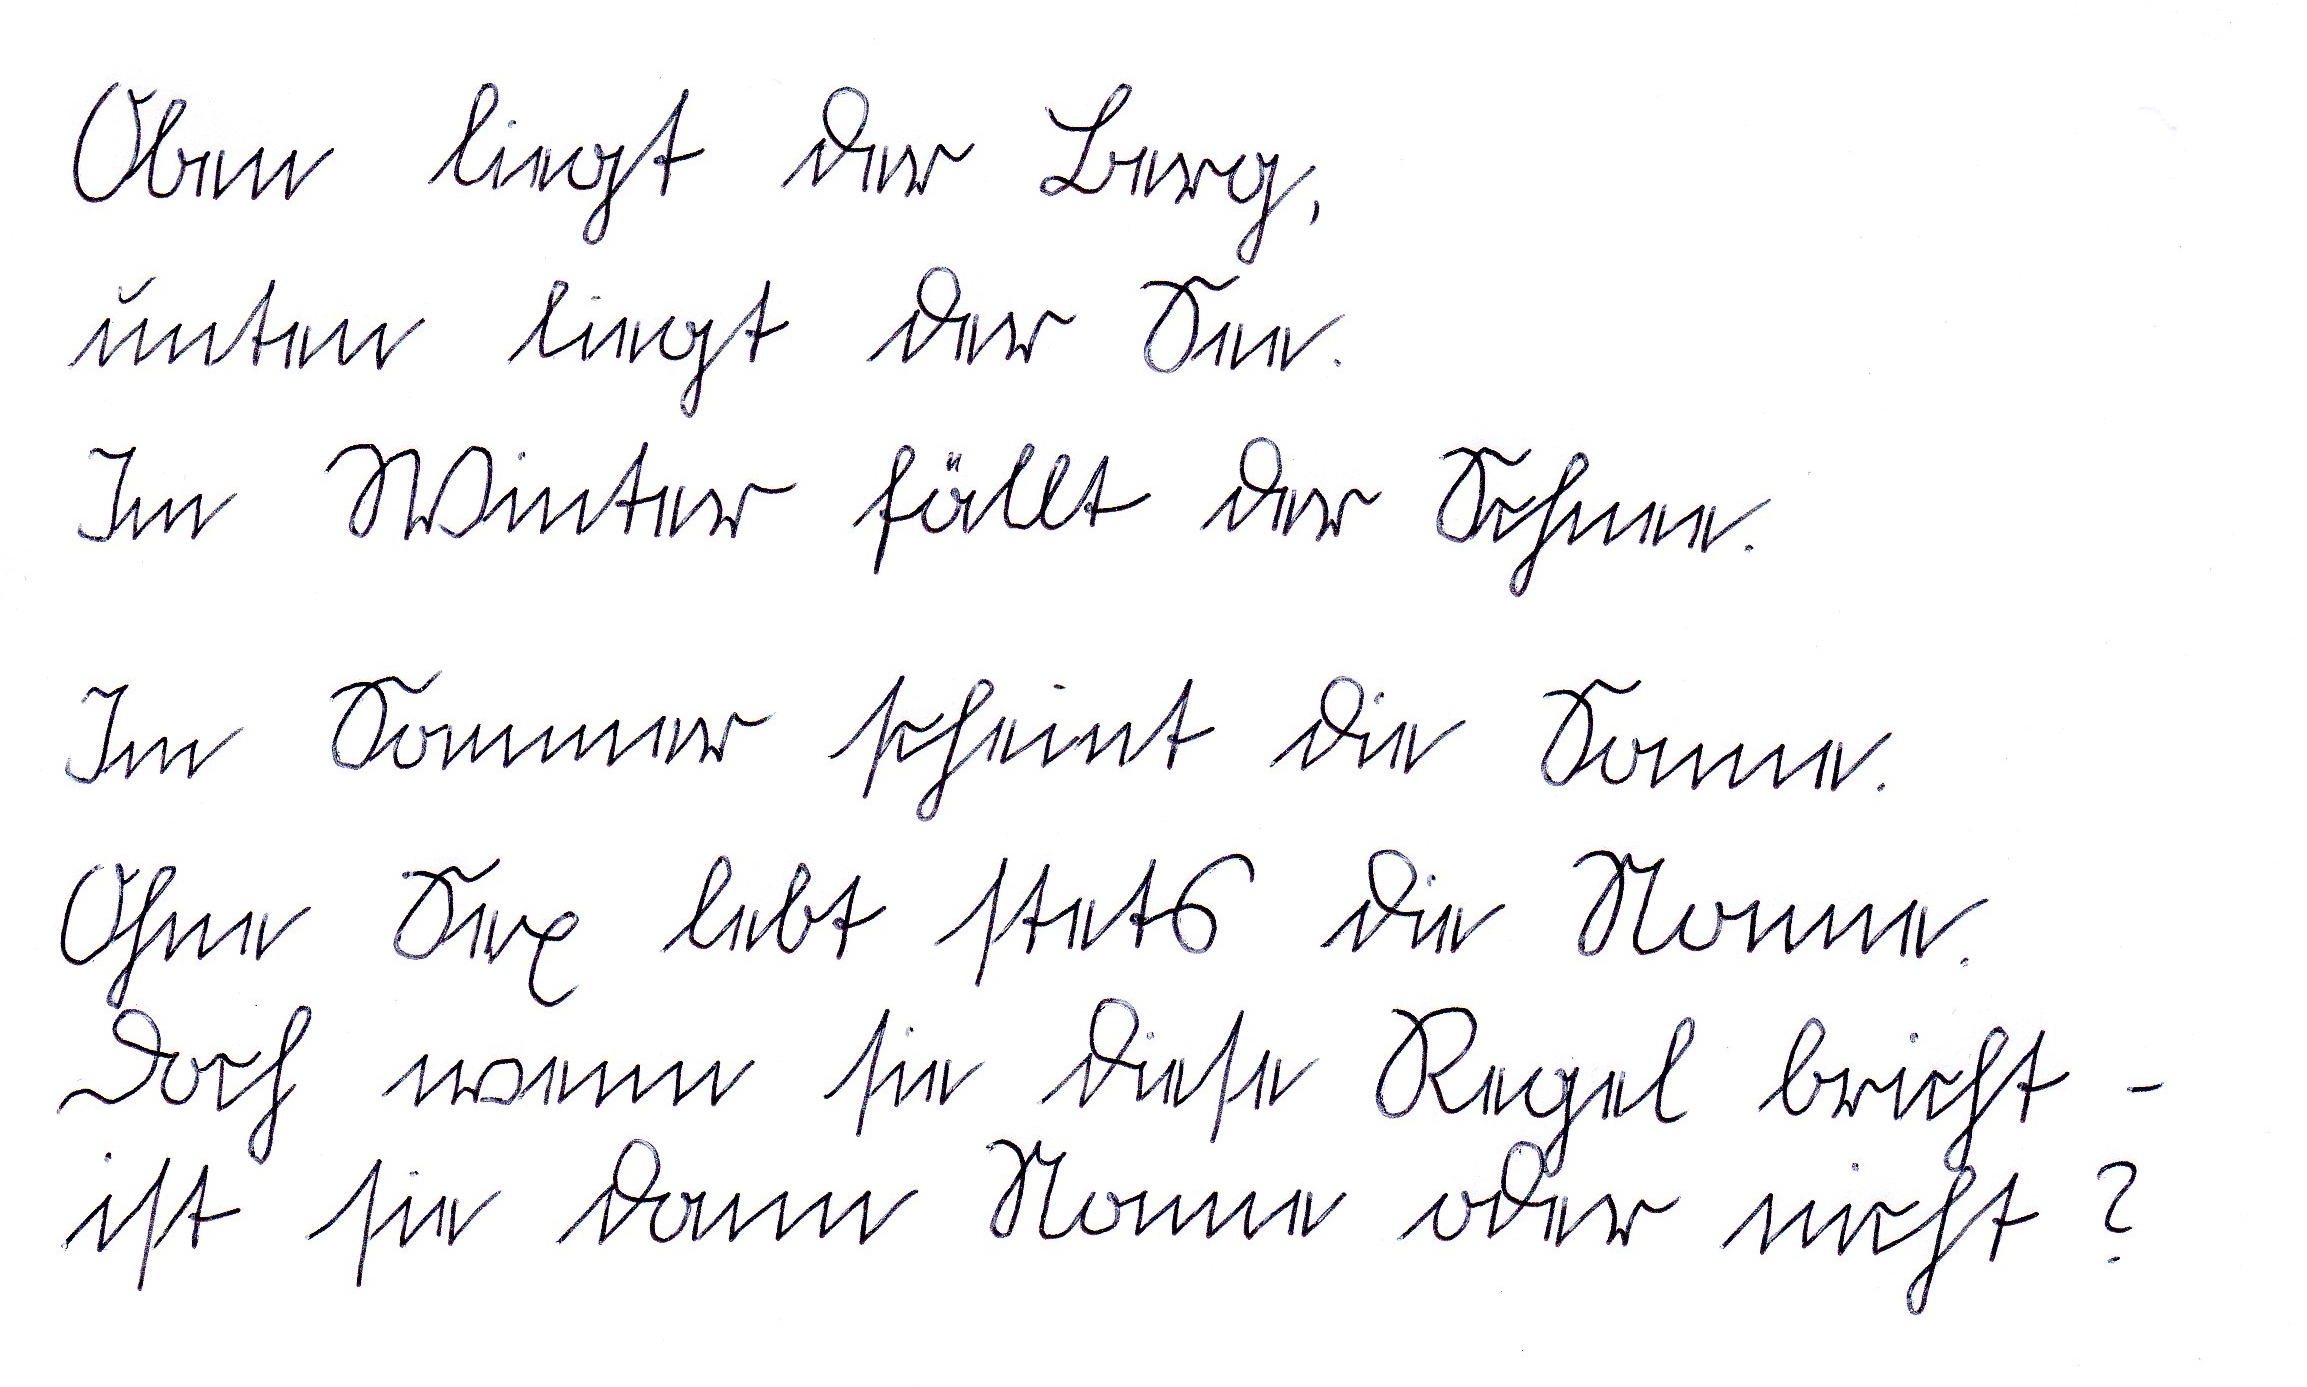 Oben liegt der Berg,
unten liegt der See.
Im Winter fällt der Schnee.
Im Sommer scheint die Sonne.
Ohne Sex lebt stets die Nonne.
Doch wenn sie diese Regel bricht -
ist sie dann Nonne oder nicht?